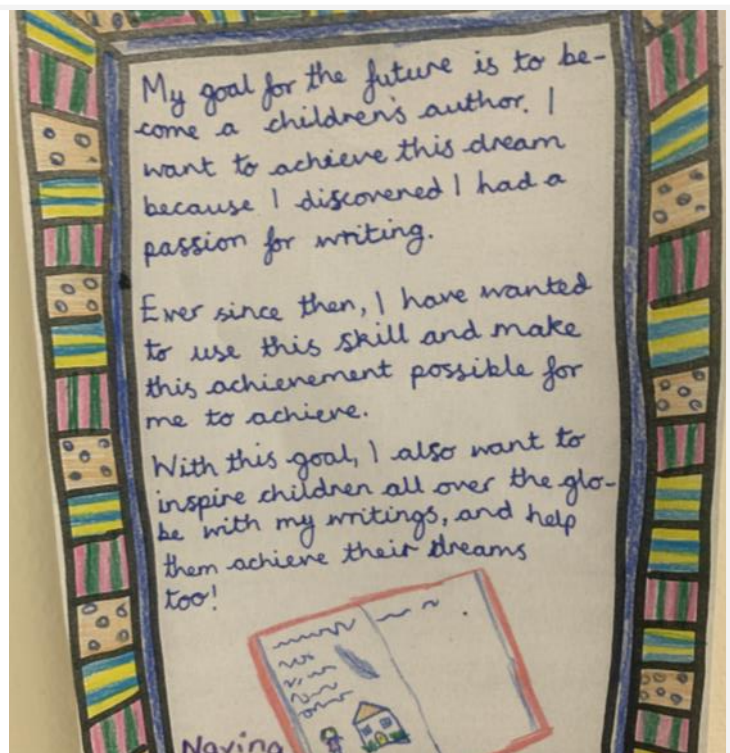 My goal for the future is to be-
come a children's author. I
want to achieve this dream
because I discovered I had a
passion for writing.
Ever since then, I have wanted
to use this skill and make
this achievement possible for
me to achieve.
With this goal, I also want to
inspire children all over the glo-
be with my writings, and help
them achieve their dreams
too!